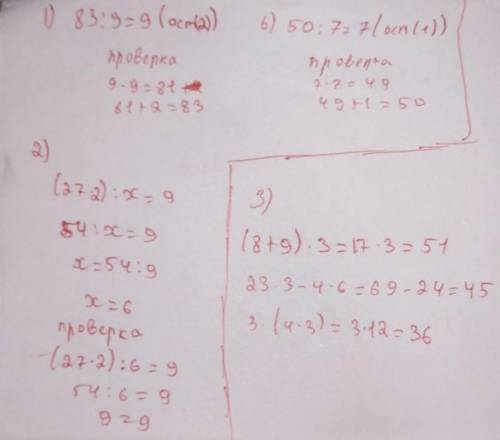 1) 83:9=9(ост(2))
проверка
9·9=81
81+2=83
б) 50:7=7(ост(1))
проверка
7·7=49
49+1=50
2)
(27·2):x=9
54:x=9
x=54:9
x=6
проверка
(27·2):6=9
54:6=9
9=9
3)
(8+9)·3=17·3=51
23·3-4·6=69-24=45
3·(4·3)=3·12=36